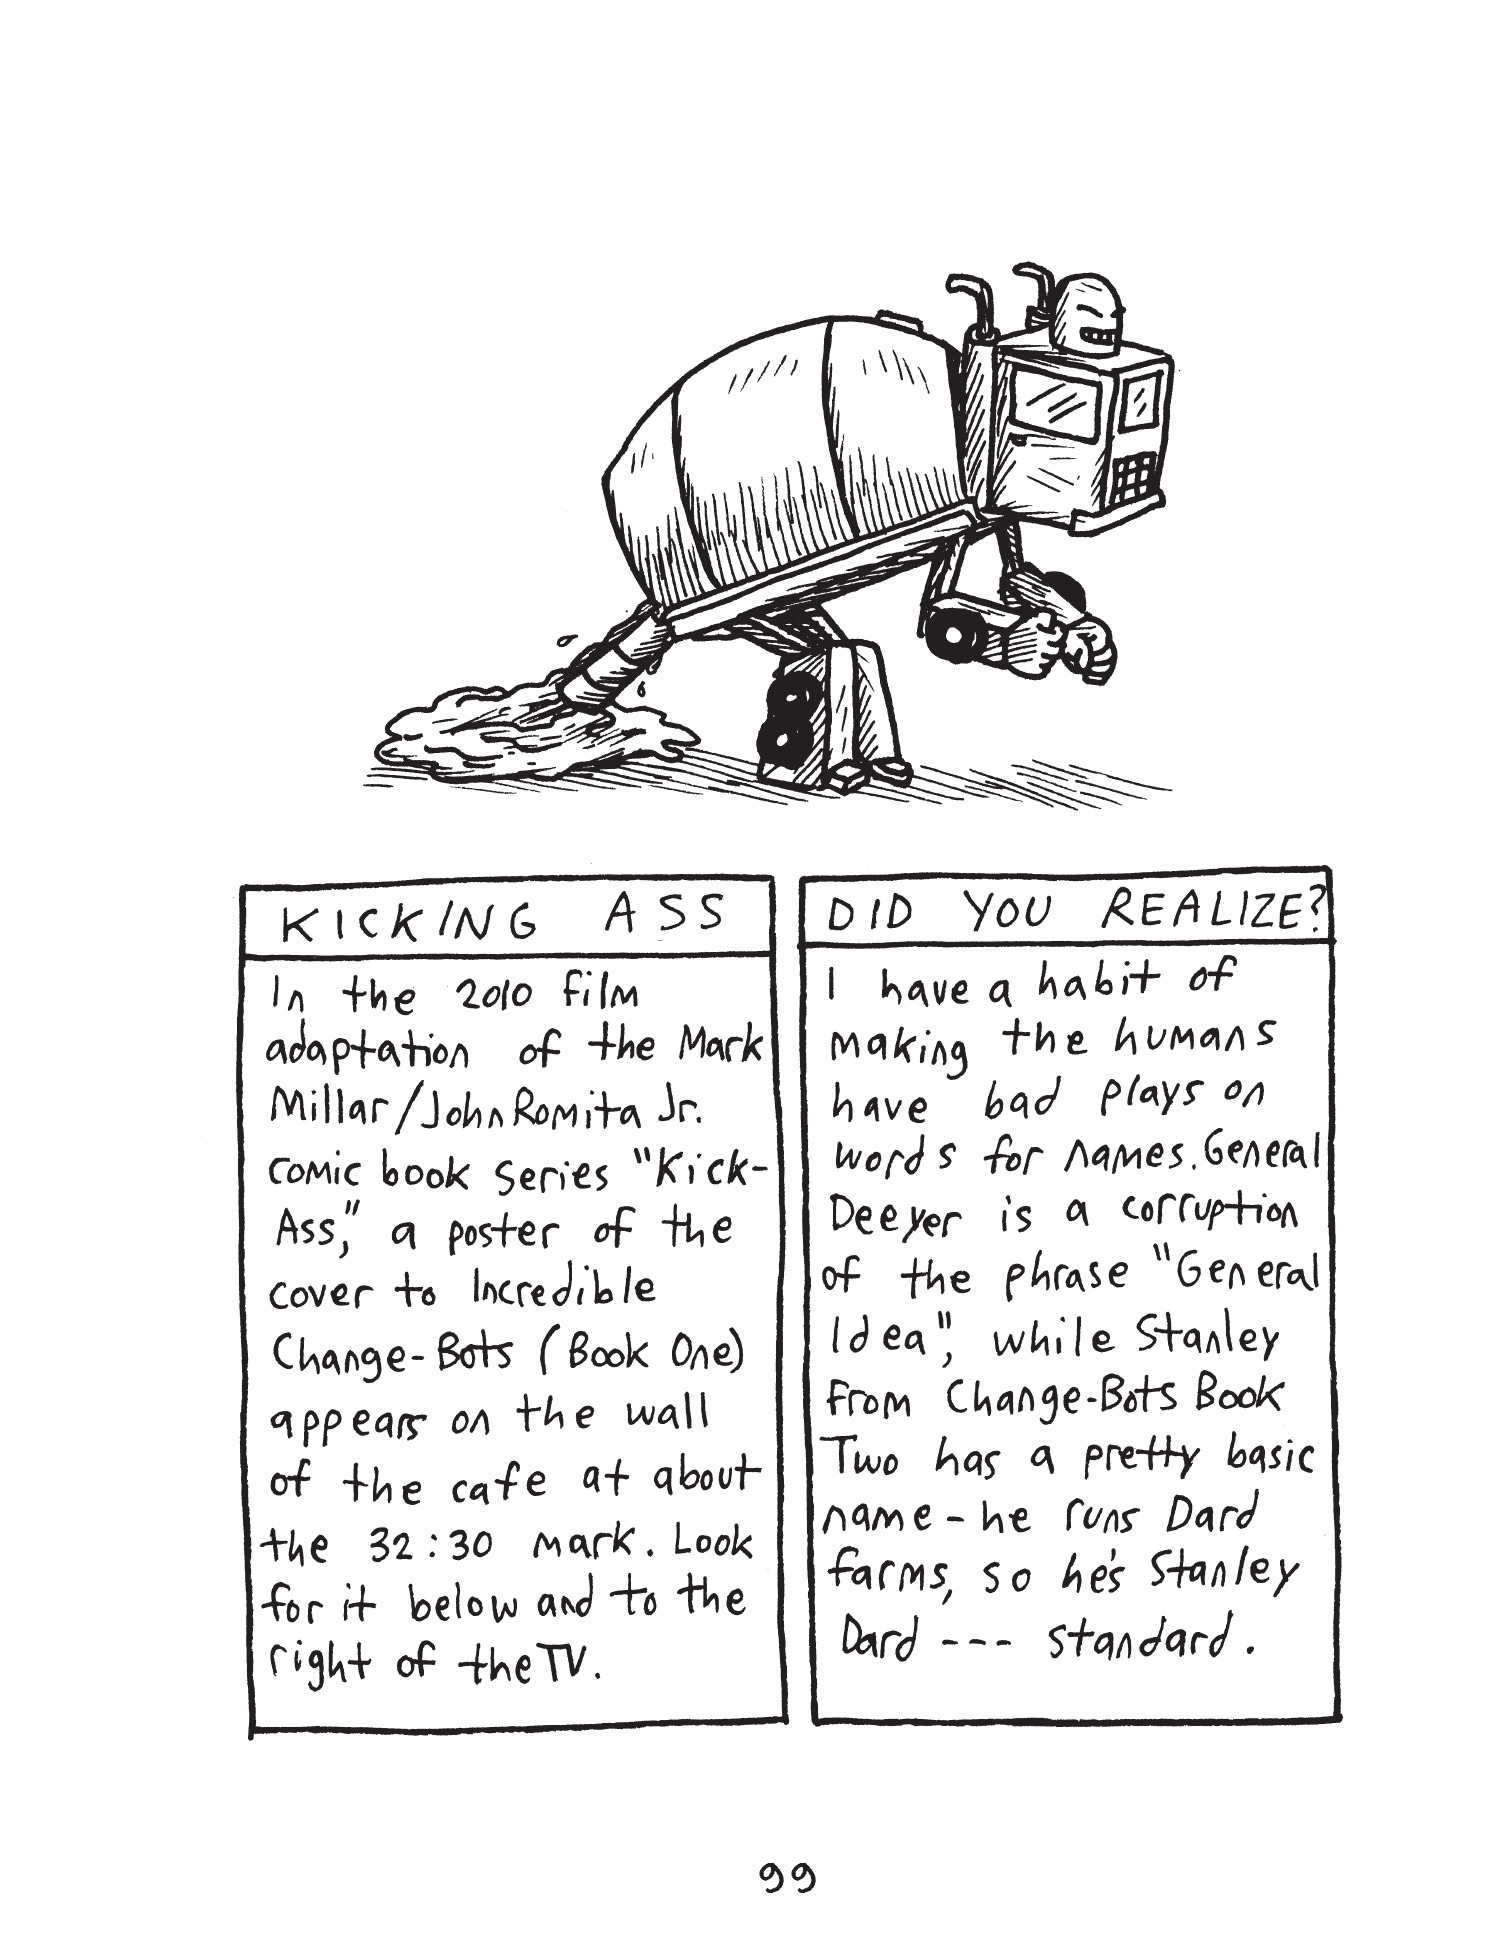 KICKING ASS
In the 2010 film
adaptation of the Mark
Millar/John Romita Jr.
comic book series "Kick-
Ass," a poster of the
cover to Incredible
Change-Bots (Book One)
appears on the wall
of the cafe at about
the 32:30 mark. Look
for it below and to the
right of the TV.
DID YOU REALIZE?
I have a habit of
making the humans
have bad plays on
words for names. General
Deeyer is a corruption
of the phrase "General
Idea", while Stanley
from Change-Bots Book
Two has a pretty basic
name - he runs Dard
farms, so he's Stanley
Dard --- standard.
99